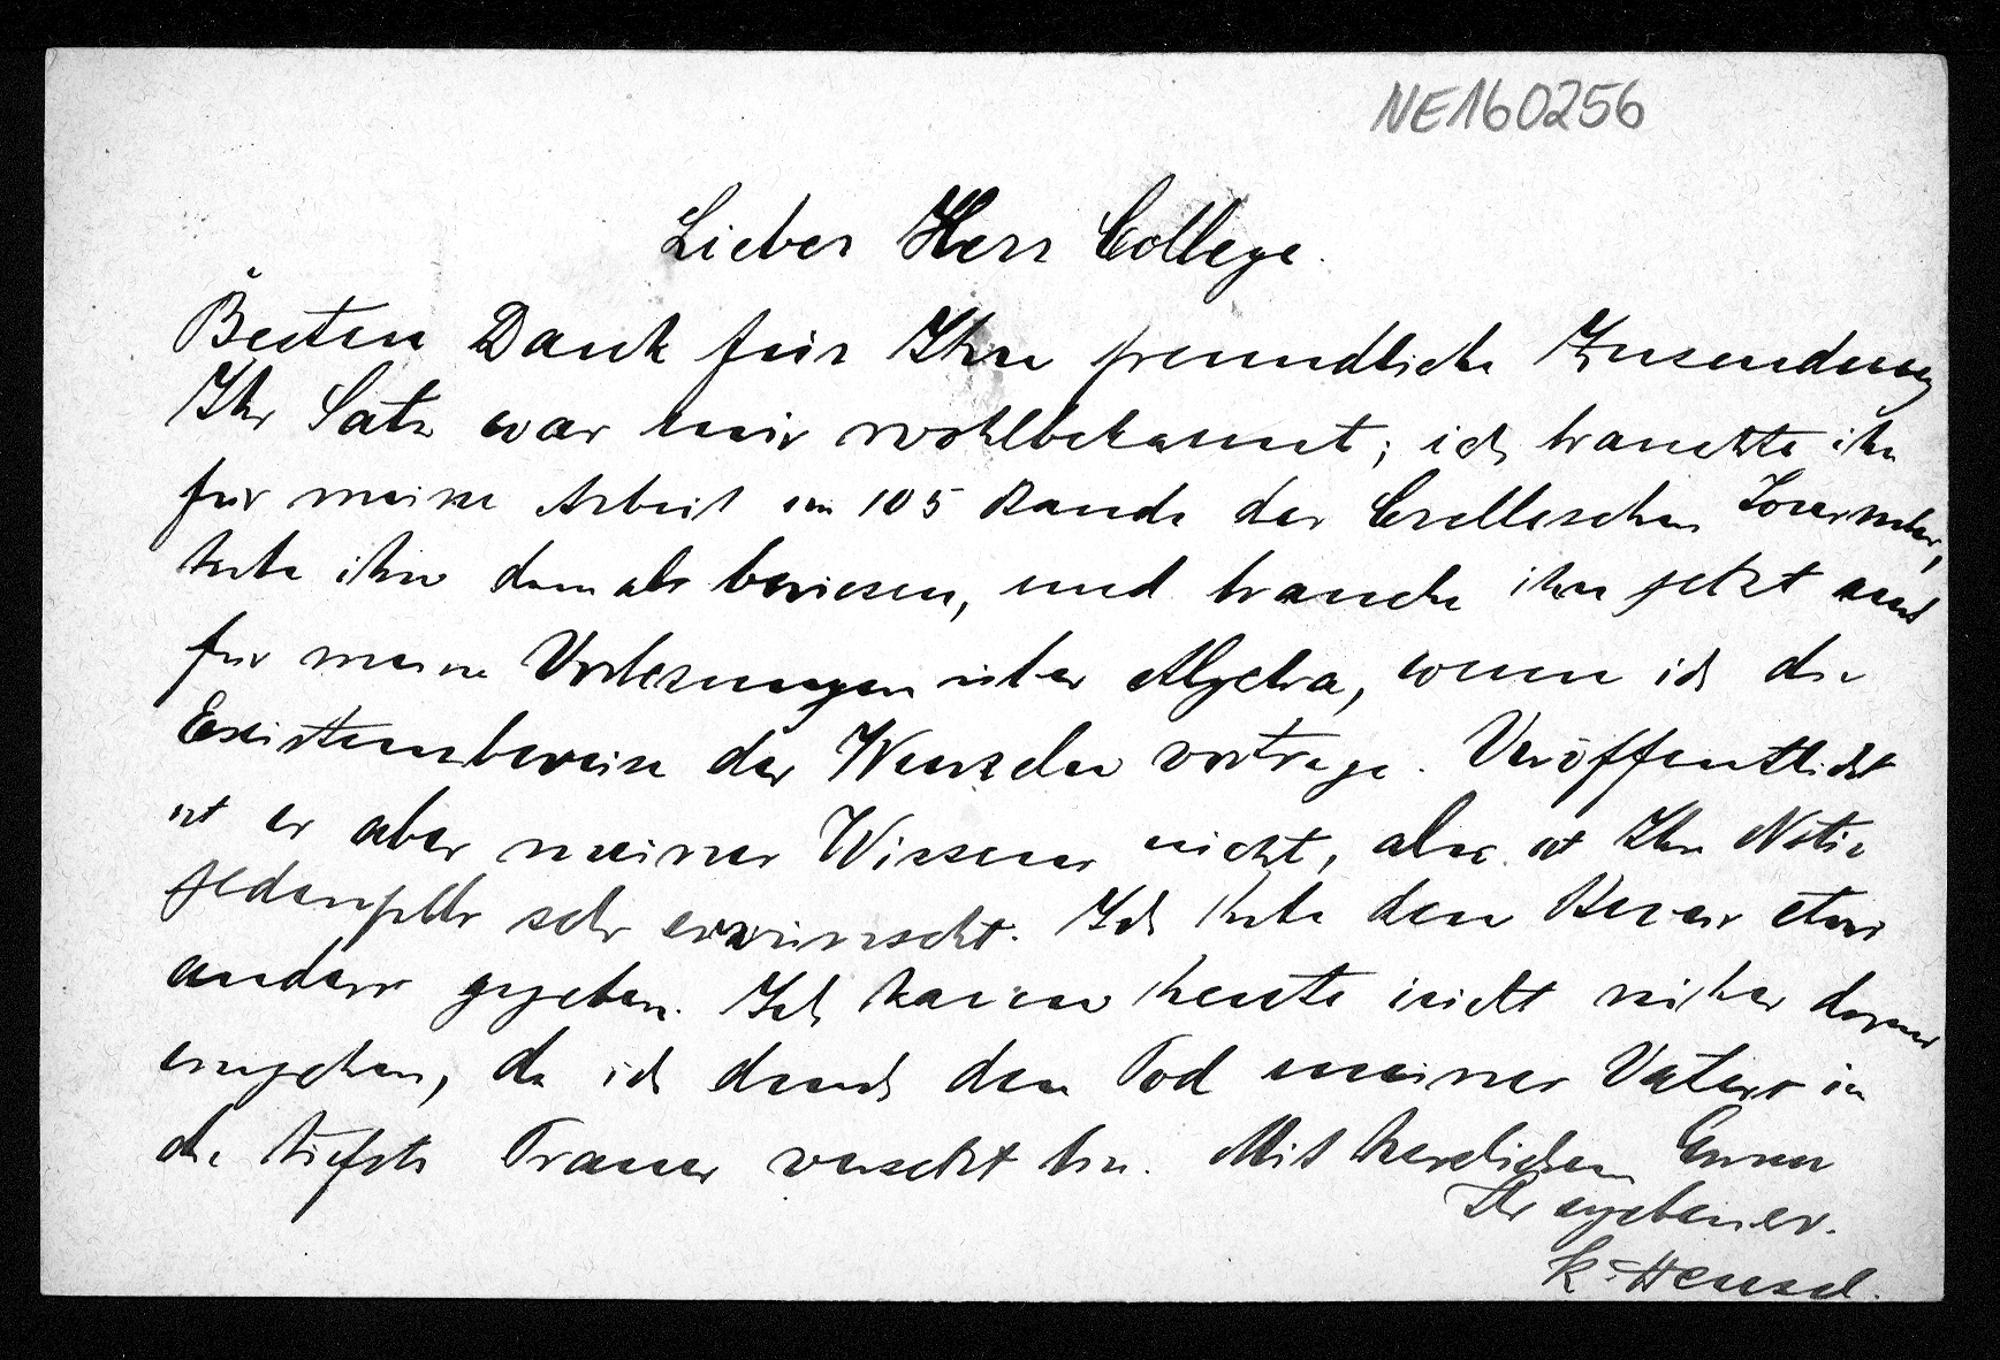 NE160256
Lieber Herr College.
Besten Dank für Ihre freundliche Zusendung
Ihr Satz war mir wohlbekannt; ich brauchte ihn
für meine Arbeit im 105 Bande des Crelleschen Journales,
habe ihn damals bewiesen, und brauche ihn jetzt auch
für meine Vorlesungen über Algebra, wenn ich die
Existenzbeweise der Wurzeln vortrage. Veröffentlicht
ist er aber meines Wissens nicht, also ist Ihre Notiz
jedenfalls sehr erwünscht. Ich habe den Beweis etwas
anders gegeben. Ich kann heute nicht näher darauf
eingehen, da ich durch den Tod meines Vaters in
die tiefste Trauer versetzt bin. Mit herzlichem Gruss
Ihr ergebener.
K. Hensel.